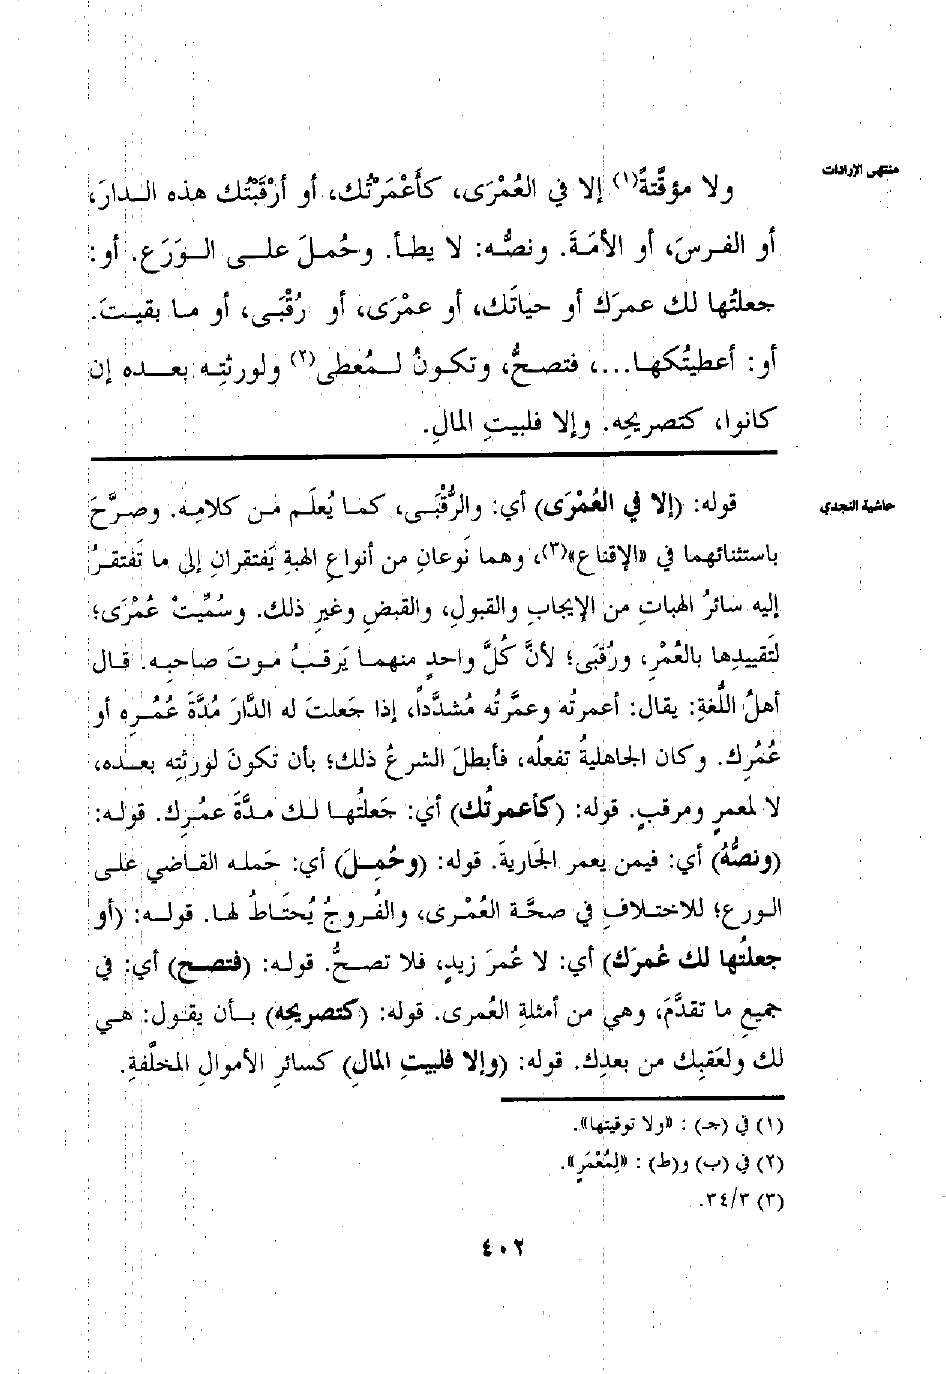 منتهى الإرادات
ولا مؤقَّتةً(١) إلا في العُمْرَى، كأَعْمَرْتُك، أو أرْقَبْتُك هذه الدارَ،
أو الفرسَ، أو الأمَةَ. ونصُّه: لا يطأ. وحُملَ على الوَرَع. أو:
جعلتُها لك عمرَك أو حياتَك، أو عمْرَى، أو رُقْبَى، أو ما بقيتَ.
أو: أعطيتُكها...، فتصحُّ، وتكونُ لمُعطى(٢) ولورثتِه بعده إن
كانوا، كتصريحِه. وإلا فلبيتِ المالِ.
حاشية النجدي
قوله: (إلا في العُمْرَى) أي: والرُّقْبَى، كما يُعلَم من كلامِه. وصرَّحَ
باستثنائهما في «الإقناع»(٣)، وهما نَوعانِ من أنواعِ الهبةِ يَفتقران إلى ما تَفتقرُ
إليه سائرُ الهباتِ من الإيجابِ والقبولِ، والقبضِ وغيرِ ذلك. وسُمِّيتْ عُمْرَى؛
لتَقييدِها بالعُمْرِ، ورُقبَى؛ لأنَّ كُلَّ واحدٍ منهما يَرقبُ موتَ صاحبِه. قال
أهلُ اللُّغةِ: يقال: أعمرتُه وعمَّرتُه مُشدَّداً، إذا جَعلتَ له الدَّارَ مُدَّةَ عُمُرِه أو
عُمُرِك. وكان الجاهليةُ تفعلُه، فأبطلَ الشرعُ ذلك؛ بأن تكونَ لورثتِه بعده،
لا لمعمرٍ ومرقبٍ. قوله: (كأعمرتُك) أي: جَعلتُها لك مدَّةَ عمُرِك. قوله:
(ونصُّهُ) أي: فيمن يعمر الجَاريةَ. قوله: (وحُمِلَ) أي: حَمله القاضي على
الورعِ؛ للاختلافِ في صحَّة العُمْرى، والفُروجُ يُحتَاطُ لها. قوله: (أو
جعلتُها لك عُمرَك) أي: لا عُمرَ زيدٍ، فلا تصحُّ. قوله: (فتصح) أي: في
جميعِ ما تقدَّمَ، وهي من أمثلةِ العُمرى. قوله: (كتصريحِه) بأن يقول: هي
لك ولعَقبِك من بعدِك. قوله: (وإلا فلبيتِ المالِ) كسائرِ الأموالِ المخلَّفةِ.
(١) في (جـ) : «ولا توقيتها».
(٢) في (ب) و(ط) : «لِمُعْمَرٍ».
(٣) ٣٤/٣.
٤٠٢